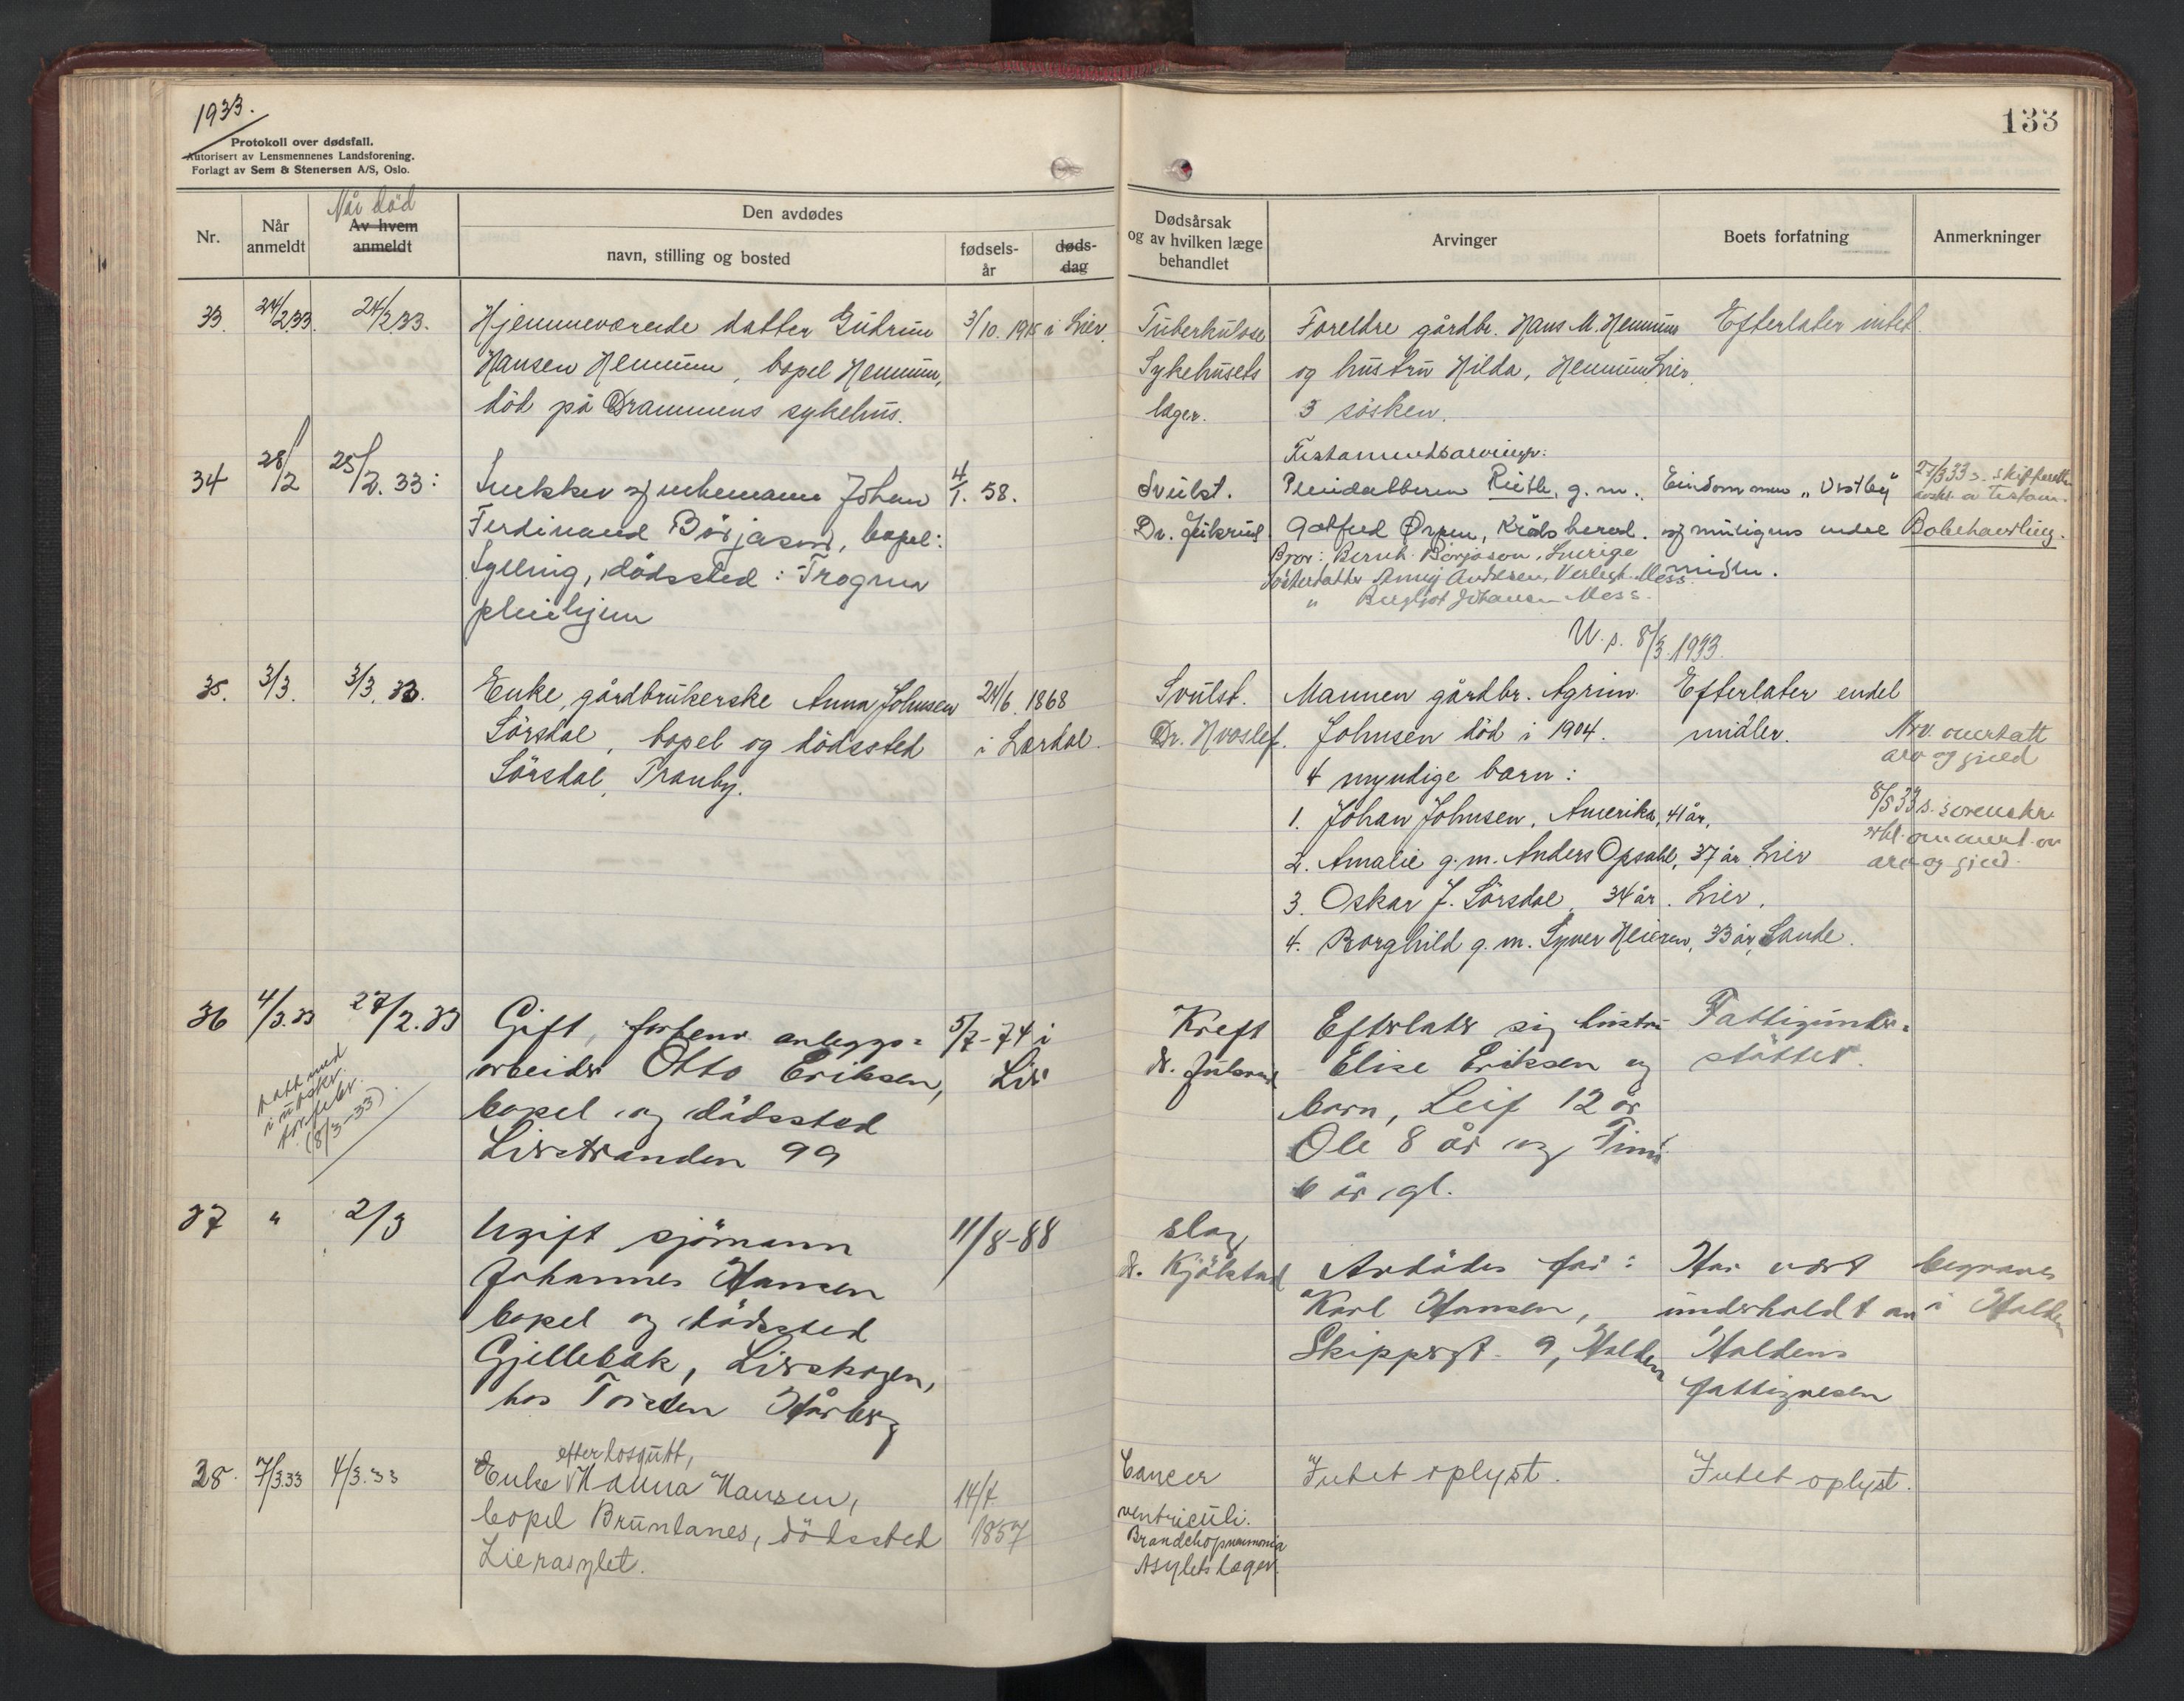 1933.
133
Protokoll over dødsfall.
Autorisert av Lensmennenes Landsforening.
Forlagt av Sem & Stenersen A/S, Oslo.
Nr.
Når anmeldt
Når død
Av hvem anmeldt
Den avdødes
navn, stilling og bosted
fødsels-år
døds-dag
Dødsårsak og av hvilken læge behandlet
Arvinger
Boets forfatning
Anmerkninger
33. 24/2 33. 24/2 33. Hjemmeværende datter Gudrun 3/10. 1915 i Lier.
Hansen Hennum, bopel Hennum,
død på Drammens sykehus.
Tuberkulose
Sykehusets
læger.
Foreldre gårdbr. Hans M. Hennum
og hustru Hilda, Hennum Lier.
3 søsken.
Efterlater intet.
34 28/2 25/2. 33: Snekker og enkemann Johan 4/1. 58.
Ferdinand Börjason, bopel:
Sylling, dødssted: Trogrud
pleiehjem
Svulst.
Dr. Julsrud
Testamentsarvinger:
Pleiedatteren Ruth, g. m.
Gotfred Ørpen, Krødsherred.
Bror: Bernh. Börjason, Sverige
Søsterdatter Anny Andersen, Verlegt. Moss.
" Bergljot Johansen Moss.
Eiendommen "Vestby"
og muligens endel
midler.
27/3 33 s. skifteretten
Bobehandling.
U. s. 8/3. 1933.
35. 3/3. 3/3. 33. Enke, gårdbrukerske Anna Johnsen 24/6. 1868
Sørsdal, bopel og dødssted i Lærdal.
Sørsdal, Tranby.
Svulst.
Dr. Hvoslef.
Mannen gårdbr. Agrim
Johnsen død i 1904.
4 myndige barn:
1. Johan Johnsen, Amerika, 41 år.
2. Amalie g. m. Anders Opsahl, 37 år. Lier
3. Oskar J. Sørsdal, 34 år. Lier.
4. Borghild g. m. Syver Heieren, 33 år, Sande.
Efterlater endel
midler.
Arv. overtatt
arv og gjeld
8/5 33 s. sorenskr.
erkl. om overt. av
arv og gjeld.
36 4/3. 33 27/2. 33 Gift, forhenv. anleggs= 5/7-74 i
arbeider Otto Eriksen, Lier
bopel og dødssted
Lierstranden 99
tatt med
i utskr.
for febr.
(8/3-33).
Kreft
dr. Julsrud
Efterlater sig hustru
Elise Eriksen og
barn, Leif 12 år
Ole 8 år og Finn
6 år gl.
Fattigunder=
støttet.
37 " 2/3 Ugift sjømann 11/8-88
Johannes Hansen
bopel og dødssted
Gjellebæk, Lierskogen,
hos Torsten Hårberg
slag
dr. Kjølstad
Avdødes far:
Karl Hansen,
Skippergt. 9, Halden
Har vært
underholdt av
Haldens
fattigvesen
begraves
i Halden
38. 7/3.33 4/3.33
efter losgutt,
Enke Hanna Hansen, 14/7
bopel Bruntanes, dødssted 1857
Lierasylet.
Cancer
ventriculi.
Brondchopneumonia
Asylets læger.
Intet oplyst.
Intet oplyst.